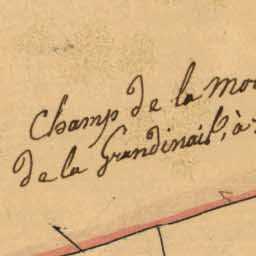 Champ de la Mo
de la Grandinais, à